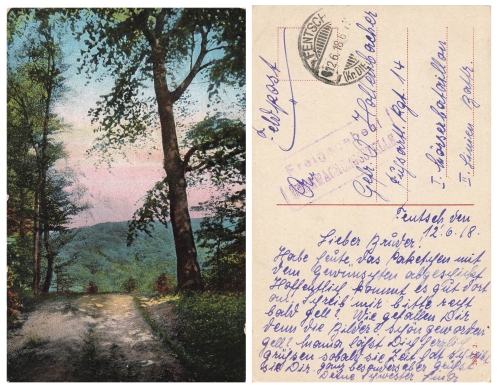 FENTSCH
12.6.18.6
Feldpost
Gefr.
Fußartl. Rgt 14
I. Mörserbataillon
Fentsch den
12.6.18.
Lieber Bruder!
Habe heute das Paketchen mit
dem Gewünschten abgeschickt
Hoffentlich kommt es gut dort
an. Schreib mir bitte recht
bald gell? Wie gefallen Dir
denn die Bilder? schön geworden
gell? Mama läßt Dich herzlich
Grüßen sobald sie Zeit hat schreibt
sie Dir. ganz besonders aber grüßt
Deine Schwester